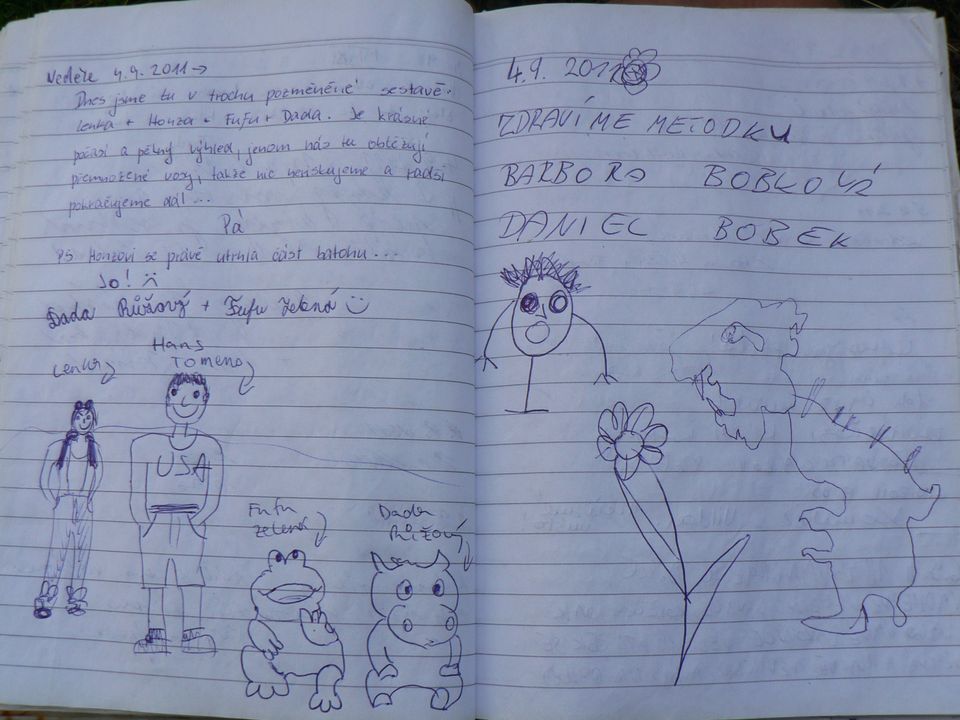 Neděle 4.9. 2011 →
Dnes jsme tu v trochu pozměněné sestavě.
Lenka + Honza + Fufu + Dada. Je krásné
počasí a pěkný výhled, jenom nás tu obtěžují
přemnožené vosy, takže nic neriskujeme a radši
pokračujeme dál...
Pá
PS Honzovi se právě utrhla část batohu...
Jo! :(
Dada Růžový + Fufu Zelená :)
Lenka
Hans
TOMENO
USA
Fufu
zelená
Dada
Růžový
4.9. 2011
ZDRAVÍME METODKU
BARBORA BOBKOVÁ
DANIEL BOBEK